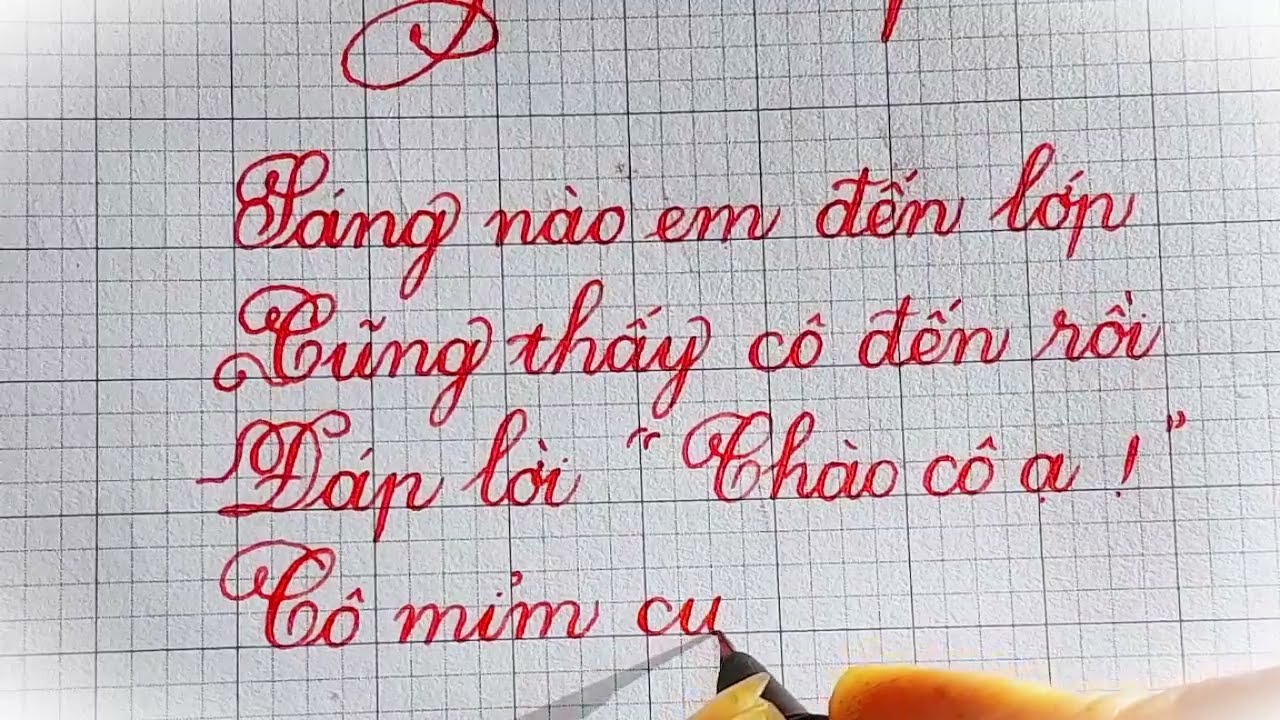 Sáng nào em đến lớp
Cũng thấy cô đến rồi
Đáp lời "Chào cô ạ!"
Cô mỉm cu